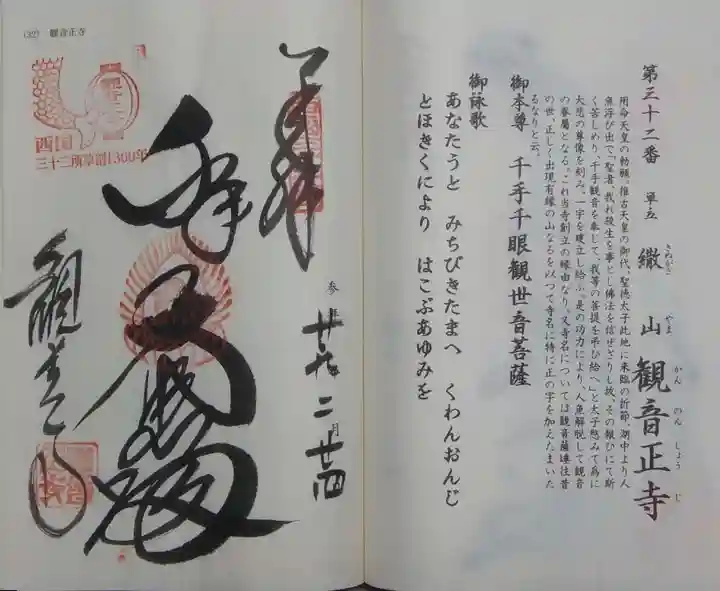 第三十二番 単立 繖山 観音正寺
きぬがさ やま かん のん しょう じ
用命天皇の勅願。推古天皇の御代、聖徳太子此地に来臨の折節、湖中より人
魚浮び出で「聖者、我れ後生を事とし佛法を信ぜざりし故、その報ひにて斯
く苦しめり、千手観音を奉して、我等の菩提を弔ひ給へ」と太子愍みて為に
大悲の尊像を刻み、一宇を建立し給ふ。是の功力により、人魚解脱して観音
の眷属となる。これ当寺創立の縁由なり。又寺名については観音薩埵往昔
の世、正しく出現有縁の山なるを以つて寺名に特に正の字を加えたまいた
るなりと云。
御本尊 千手千眼観世音菩薩
御詠歌
あなたうと みちびきたまへ くわんおんじ
とほきくにより はこぶあゆみを
(32) 観音正寺
奉拝
参拝 廿九年二月廿四
西国
三十三所草創1300年
観音正寺